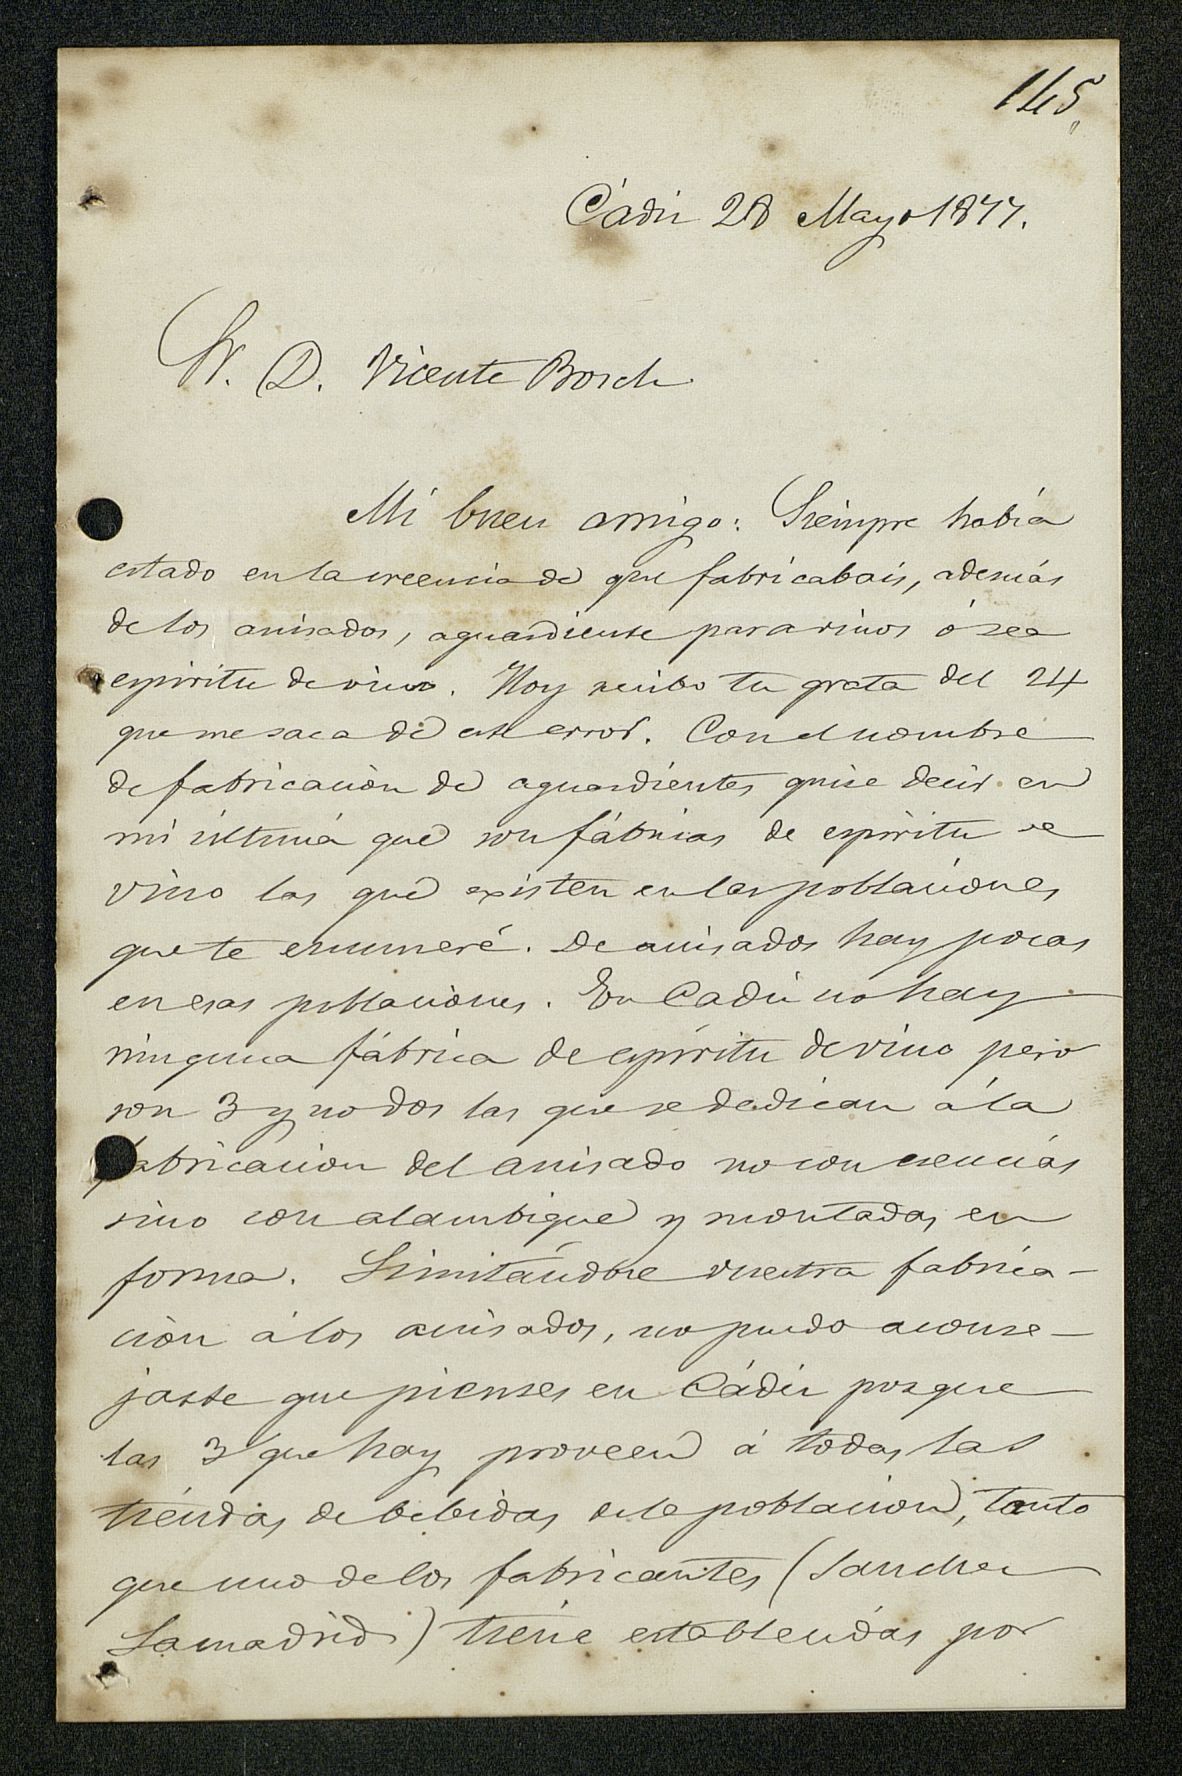 145.
Cádiz 28 Mayo 1877.
Sr. D. Vicente Bosch
Mi buen amigo: Siempre había
estado en la creencia de que fabricabais, además
de los anisados, aguardiente para vinos ó sea
espiritu de vino. Hoy recibo tu grata del 24
que me saca de este error. Con el nombre
de fabricación de aguardientes quise decir en
mi última que son fábricas de espiritu de
vino las que existen en las poblaciones
que te enumeré. De anisados hay pocas
en esas poblaciones. En Cadiz no hay
ninguna fábrica de espíritu de vino pero
son 3 y no dos las que se dedican á la
fabricacion del anisado no con esencias
sino con alambique y montadas en
forma. Limitándose vuestra fabrica-
ción á los anisados, no puedo aconse-
jarte que pienses en Cádiz porque
las 3 que hay proveen á todas las
tiendas de bebidas de la poblacion, tanto
que uno de los fabricantes (Sanchez
Lamadrid) tiene establecidas por